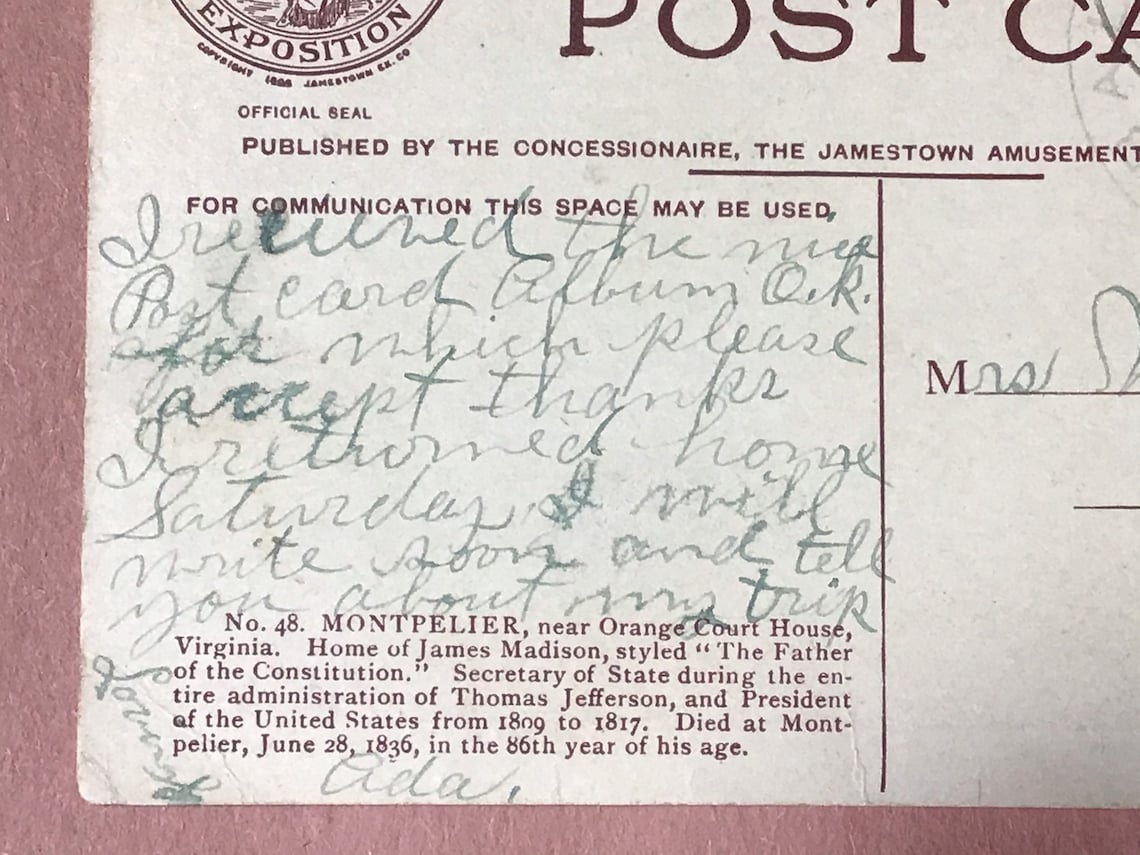 EXPOSITION
COPYRIGHT 1906 JAMESTOWN EX. CO
OFFICIAL SEAL
POST CA
PUBLISHED BY THE CONCESSIONAIRE, THE JAMESTOWN AMUSEMENT
FOR COMMUNICATION THIS SPACE MAY BE USED,
I received the nice
Post card Album O.k.
for which please
accept thanks
I returned home
Saturday I will
write soon and tell
you about my trip
No. 48. MONTPELIER, near Orange Court House,
Virginia. Home of James Madison, styled “The Father
of the Constitution.” Secretary of State during the en-
tire administration of Thomas Jefferson, and President
of the United States from 1809 to 1817. Died at Mont-
pelier, June 28, 1836, in the 86th year of his age.
Ada.
Mrs